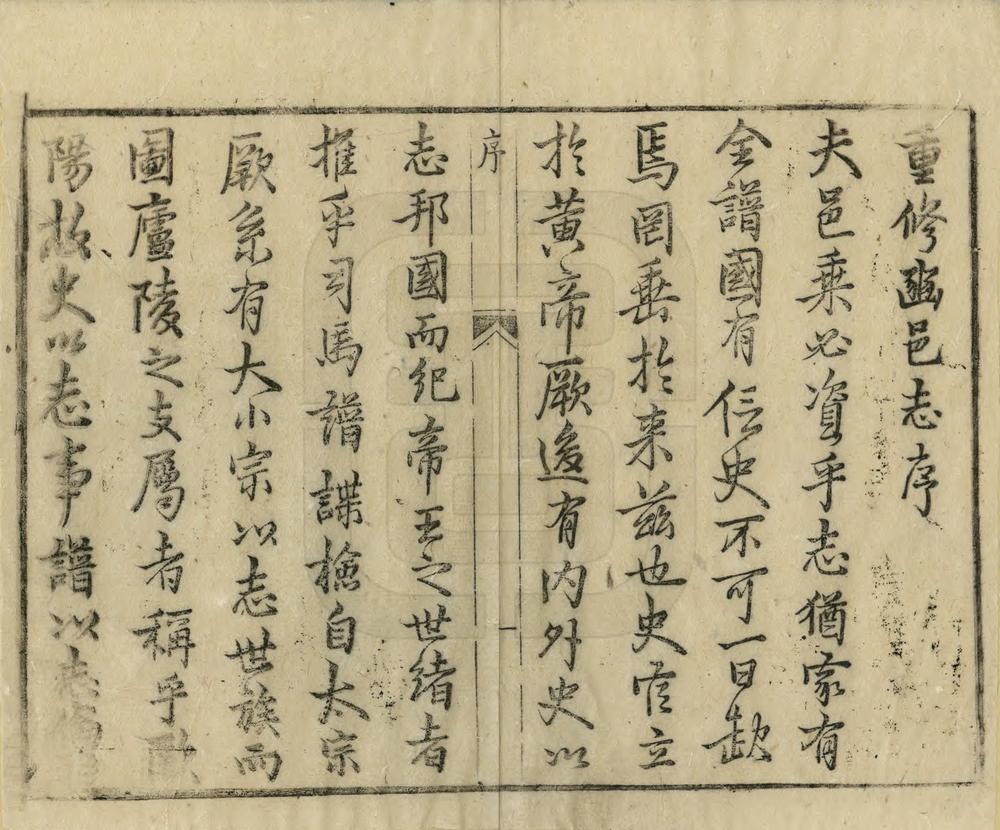 重修豳邑志序
夫邑乘必資乎志猶家有
全譜國有信史不可一日缺
焉罔垂於来茲也史官立
於黃帝厥後有内外史以
序
一
志邦國而紀帝王之世緒者
推乎司馬譜諜檢自太宗
厥系有大小宗以志世族而
圖廬陵之支屬者稱乎歐
陽故史以志事譜以志